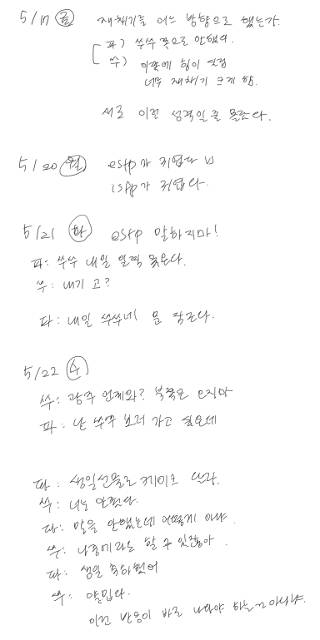 5/17 금 재채기를 어느 방향으로 했는가.
파) 쑤쑤 쪽으로 안했다.
쑤) 이광에 힘이 있음
너무 재채기 크게 함.
서로 이런 성격일 줄 몰랐다.
5/20 월 esfp가 귀엽다 vs
isfp가 귀엽다.
5/21 화 estp 말하지마!
파: 쑤쑤 내일 일찍 못온다.
쑤: 내기 고?
파: 내일 쑤쑤네 몸 잠근다.
5/22 수
쑤: 광주 언제와? 북쪽은 오지마
파: 난 쑤쑤 보러 가고 싶은데
파: 생일선물로 케이크 난라.
쑤: 너는 안줬다.
파: 말을 안했는데 어떻게 아냐.
쑤: 나중에라도 할 수 있잖아.
파: 생일 축하했어
쑤: 얄밉다.
이런 반응이 바로 나와야 하는거 아니냐.